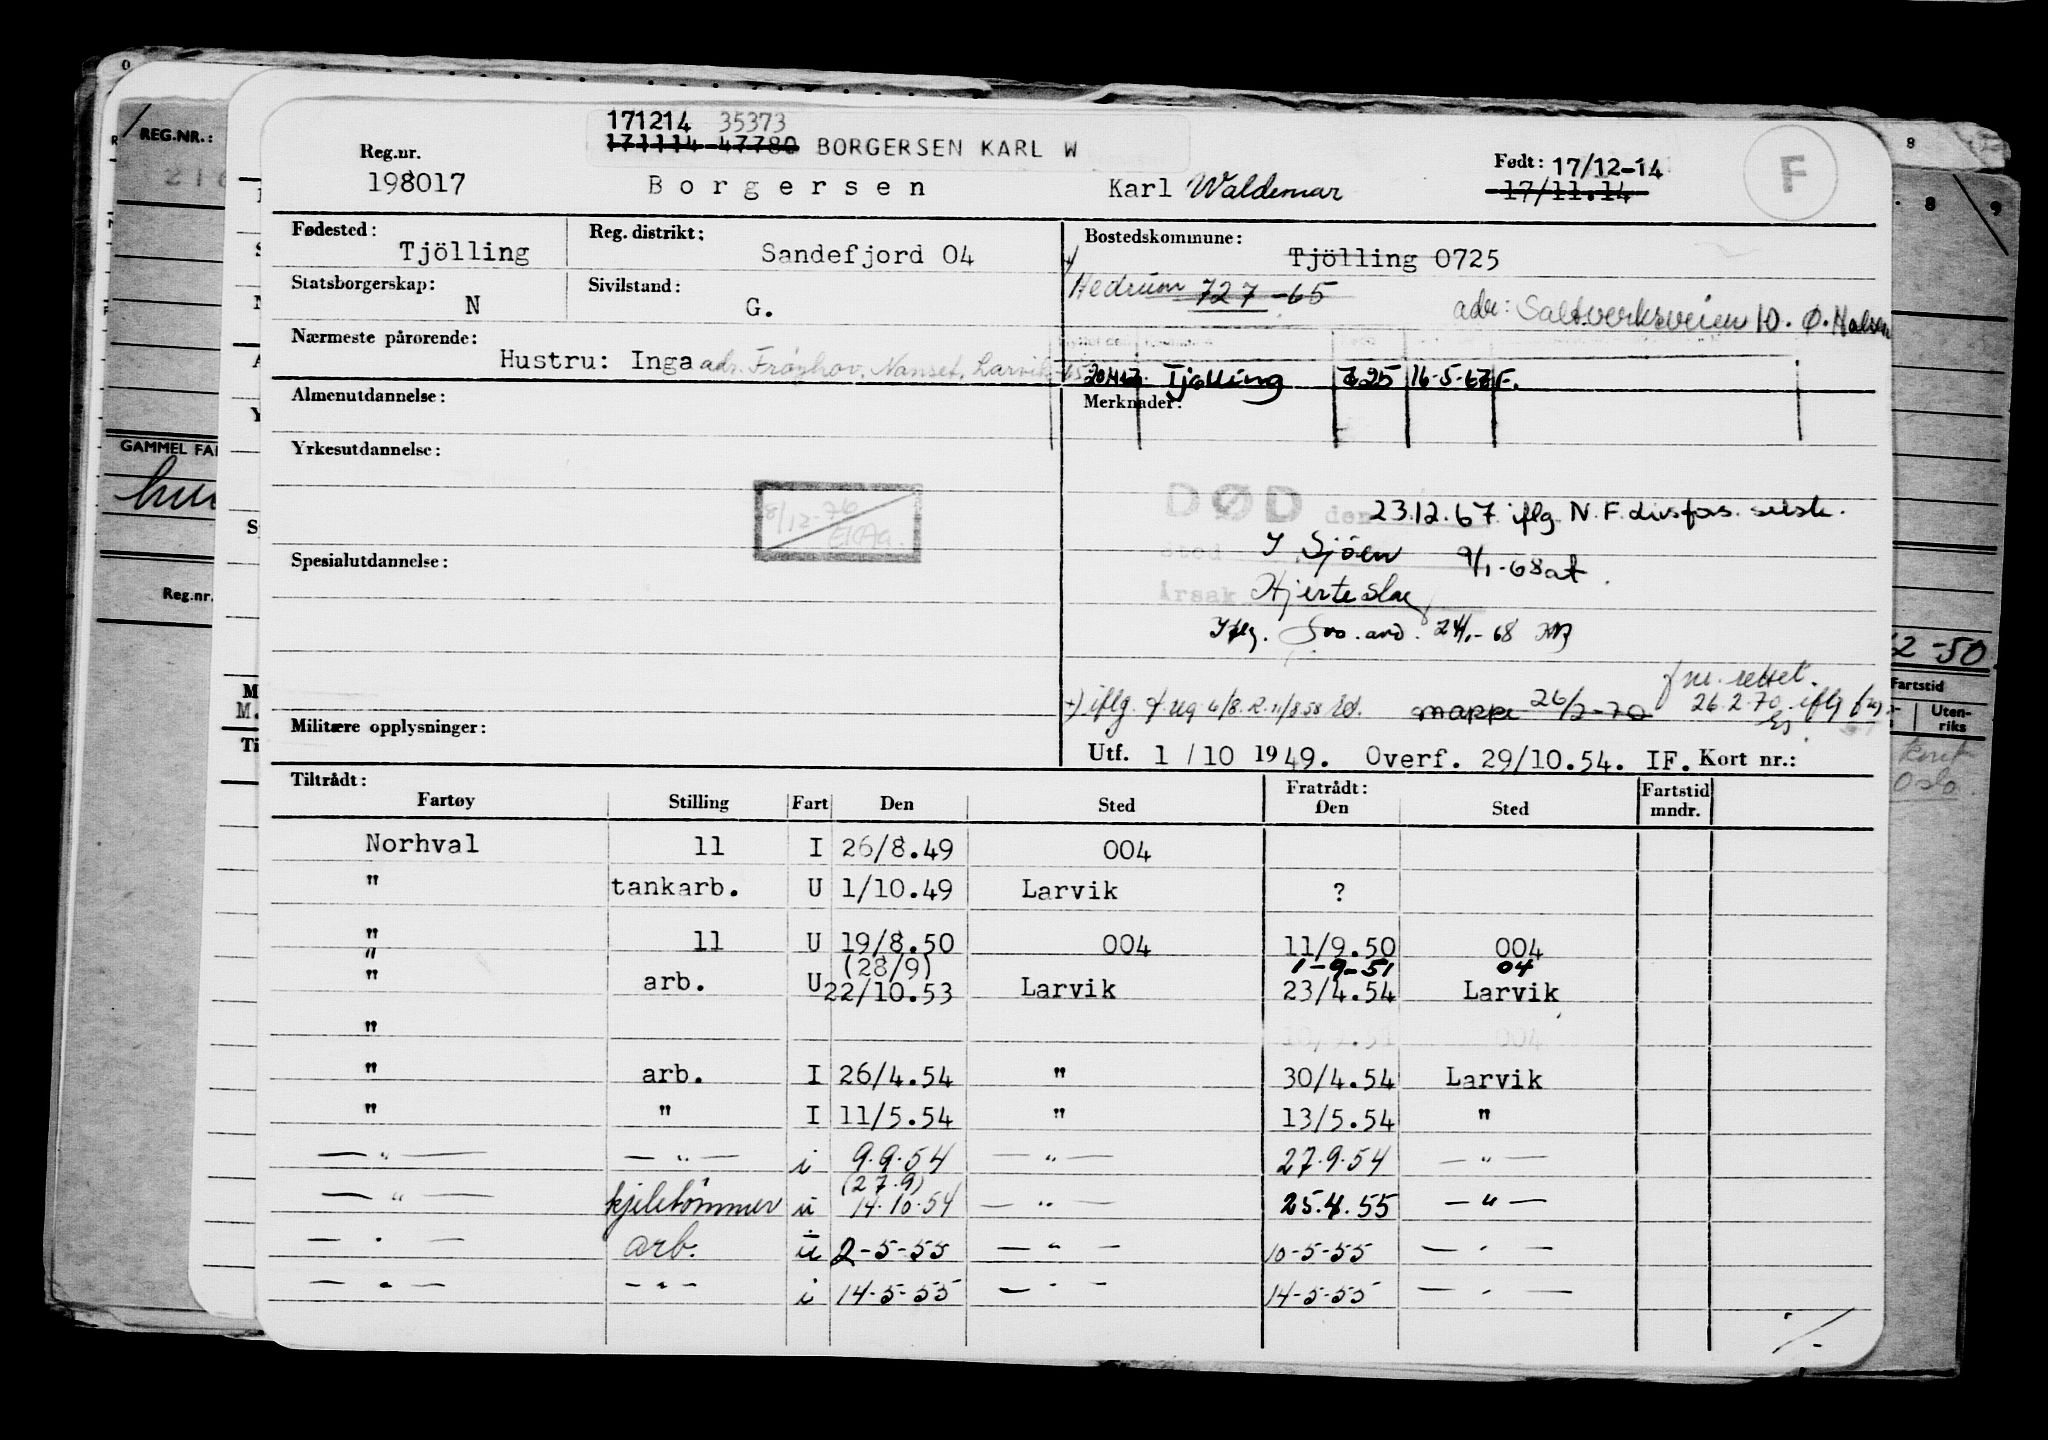 171214 35373
171114 47780 BORGERSEN KARL W
Reg.nr. 198017 Borgersen Karl Waldemar Født: 17/12-14
17/11.14
F
Fødested: Tjölling Reg. distrikt: Sandefjord 04 Bostedskommune: Tjölling 0725
Statsborgerskap: N Sivilstand: G. Hedrum 727 -65
adr: Saltverksveien 10. Ø. Halsen
Nærmeste pårørende: Hustru: Inga adr. Frøyhov. Nanset. Larvik -65
Tjølling 725 16-5-67 F.
Almenutdannelse: Merknader:
Yrkesutdannelse:
8/12-76
DØD den 23.12.67 iflg N.F. livsfors. selsk.
sted I Sjøen 9/1-68 at.
Spesialutdannelse:
Årsak Hjerteslag
Iflg. 24/1-68
f nr. rettet.
+) iflg. f.reg 4/8. R. 11/8 58 mappe 26/2-70 26.2.70 iflg freg
Militære opplysninger:
Utf. 1/10 1949. Overf. 29/10.54. IF. Kort nr.:
Tiltrådt: Fratrådt:
Fartøy Stilling Fart Den Sted Den Sted Fartstid mndr.
Norhval 11 I 26/8.49 004
" tankarb. U 1/10.49 Larvik ?
" 11 U 19/8.50 004 11/9.50 004
" (28/9) 1-9-51 04
" arb. U 22/10.53 Larvik 23/4.54 Larvik
" 004
" arb. I 26/4.54 " 30/4.54 Larvik
" " I 11/5.54 " 13/5.54 "
— " — — " — i 9.9.54 — " — 27.9.54 — " —
(27.9)
— " — kjeletømmer u 14.10.54 — " — 25.4.55 — " —
— " — arb. u 2-5-55 — " — 10-5-55 — " —
— " — — " — i 14-5-55 — " — 14-5-55 — " —
REG.NR.:
GAMMEL FA
Reg.nr.
2-50
Fartstid
Uten-
riks
Oslo
8 9